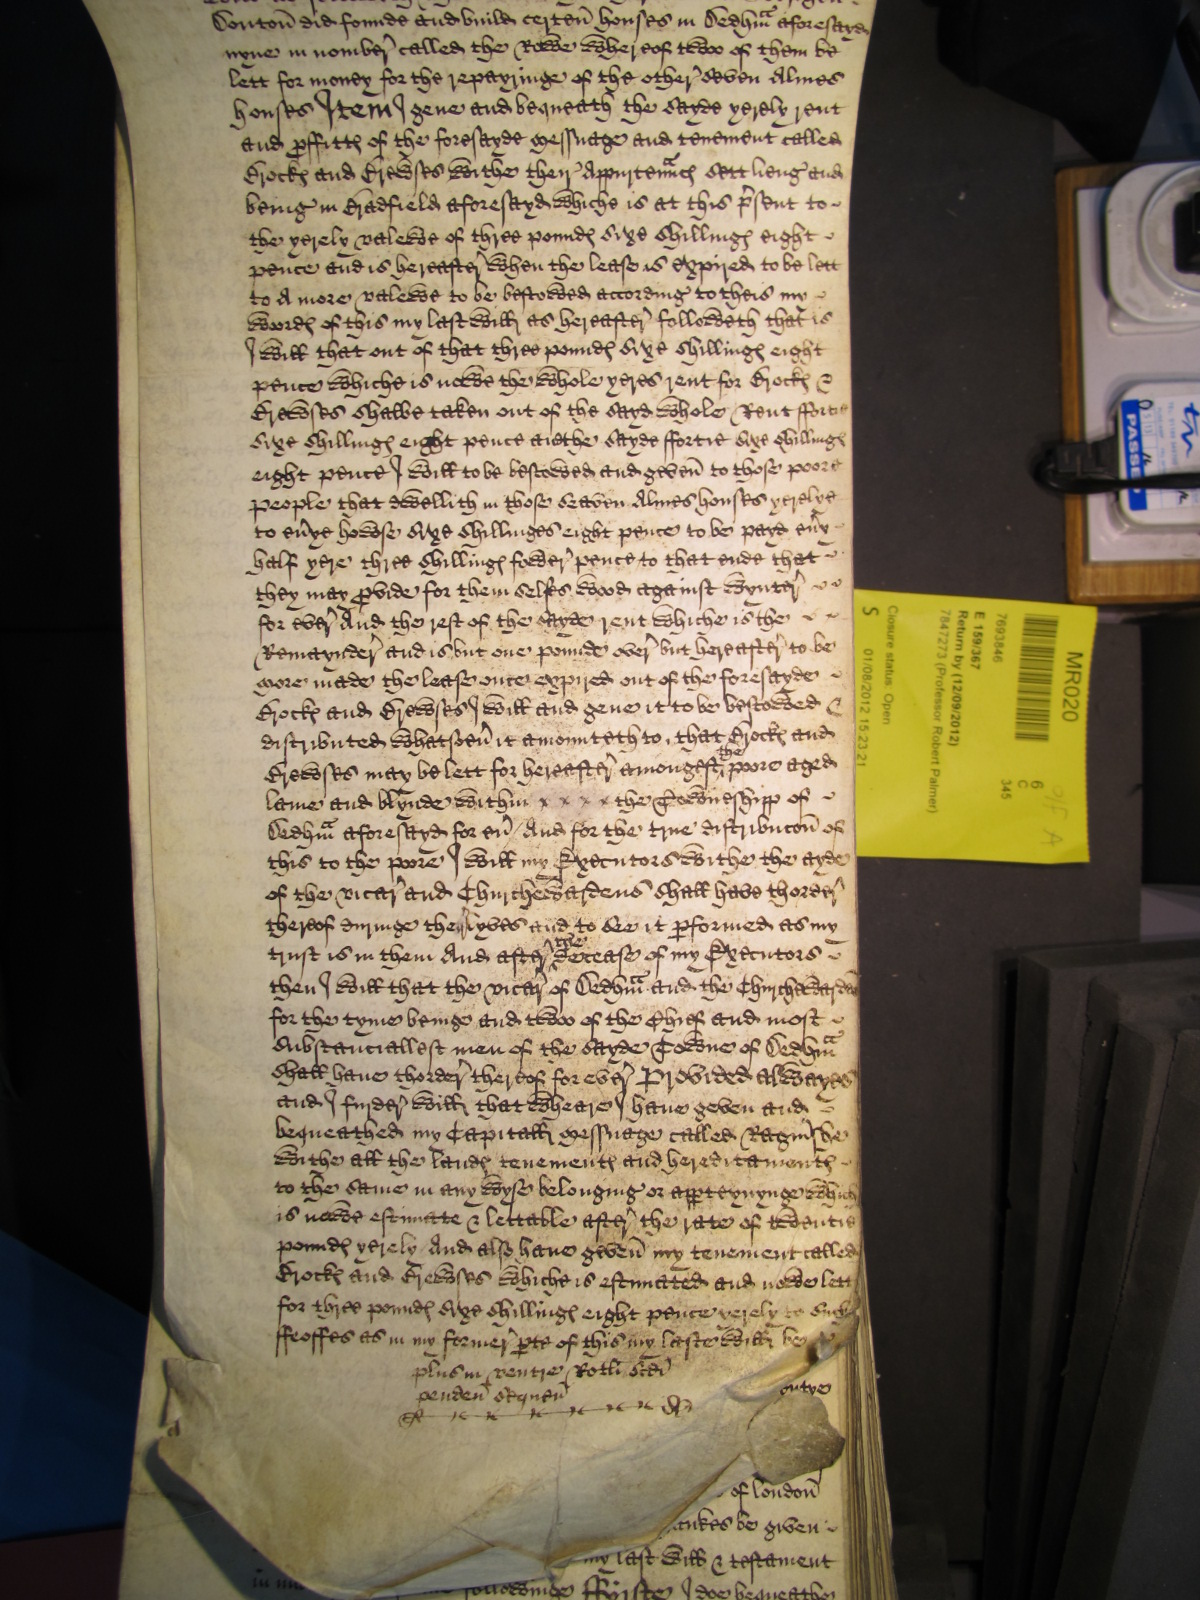 Conton did founde and build certen houses in Dedhm aforesayd
nyne in nomber called the Rowe Whereof twoo of them be
lett for money for the repayringe of the other seven Almes
houses Item I geve and bequeath the sayde yerely rent
and pffitts of the foresayde messuage and tenement called
Crocks and Crewses withe their Appurtennc sett lieng and
being in Bradfield aforesayd whiche is at this psent to
the yerely valewe of three pounds sixe shillings eight
pence and is hereafter when the lease is expired to be lett
to A more valewe to be bestowed according to theis my
words of this my last will as hereafter followeth that is
I will that out of that three pounds sixe shillings eight
pence whiche is nowe the whole yeres rent for Crocks &
Crewses shalbe taken out of the sayd whole Rent fforte
sixe shillings eight pence and the sayde ffortie sixe shillings
eight pence I will to be bestowed and geven to those poore
people that dwellith in those seaven Almes houses yerelye
to evye howse sixe shillinges eight pence to be payd evy
half yere three shillings fower pence to that ende that
they may pvide for them selfes wood against wynter
for ever And the rest of the sayde rent whiche is the
Remaynder and is but one pounde over but hereafter to be
more made the lease once expired out of the foresayde
Crocks and Crewses I will and geve it to be bestowed &
distributed whatsoev it amounteth to, that Crocks and
Crewses may be lett for hereafter amongest the poore aged
lame and blynde within x x x x the Towneshipp of
Dedhm aforesayd for ev And for the true distribucon of
this to the poore I will my Executors withe the ayde
of the vicar and Churchewardens shall have thorder
thereof duringe their lyves and to see it pformed as my
trust is in them And after the decease of my Executors
then I will that the vicar of Dedhm and the Churchewardens
for the tyme beinge and twoo of the chief and most
substanciallest men of the sayde Towne of Dedhm
shall have thorder thereof for ever Provided alwayes
and I furder will that wheare I have geven and
bequeathed my Capitall messuage called
withe all the lands tenements and hereditaments
to the same in any wyse belonging or apperteynynge which
is nowe estimate & lettable after the rate of twentie
pounds yerely And also have geven my tenement called
Crocks and Crewses whiche is estimated and nowe lett
for three pounds sixe shillings eight pence yerely to such
ffeoffes as in my former pte of this my laste will be
plus in ventre Rotli sedi
penden sequen
of London
be given
my last will & testament
ffirste I doe bequeathe
MR020
7693846
6
C
345
E 159/367
Return by (12/09/2012)
7847273 (Professor Robert Palmer)
Closure status: Open
S 01/08/2012 15:23:21
PASSE